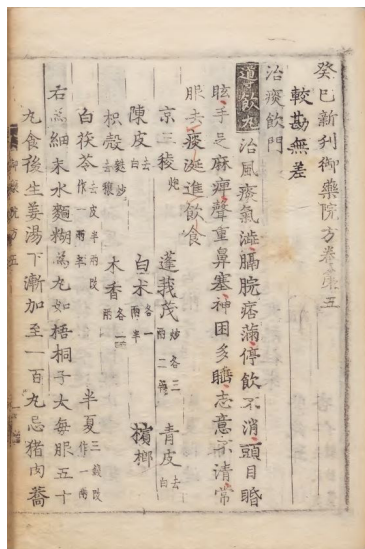 癸巳新刊御藥院方卷第五
較勘無差
治痰飲門
導飲丸 治風痰氣澁膈脘痞滿停飲不消頭目昏
眩手足麻痺聲重鼻塞神困多睡志意不清常
服去痰涎進飲食
京三稜炮 蓬莪茂炒各三兩二錢 青皮去白
陳皮去白 白朮各一兩半 檳榔
枳殼麩炒去穰 木香各一兩
白茯苓去皮半兩改作一兩半 半夏三錢改作一兩
右為細末水麵糊為丸如梧桐子大每服五十
丸食後生姜湯下漸加至一百丸忌猪肉蕎
御藥院方五